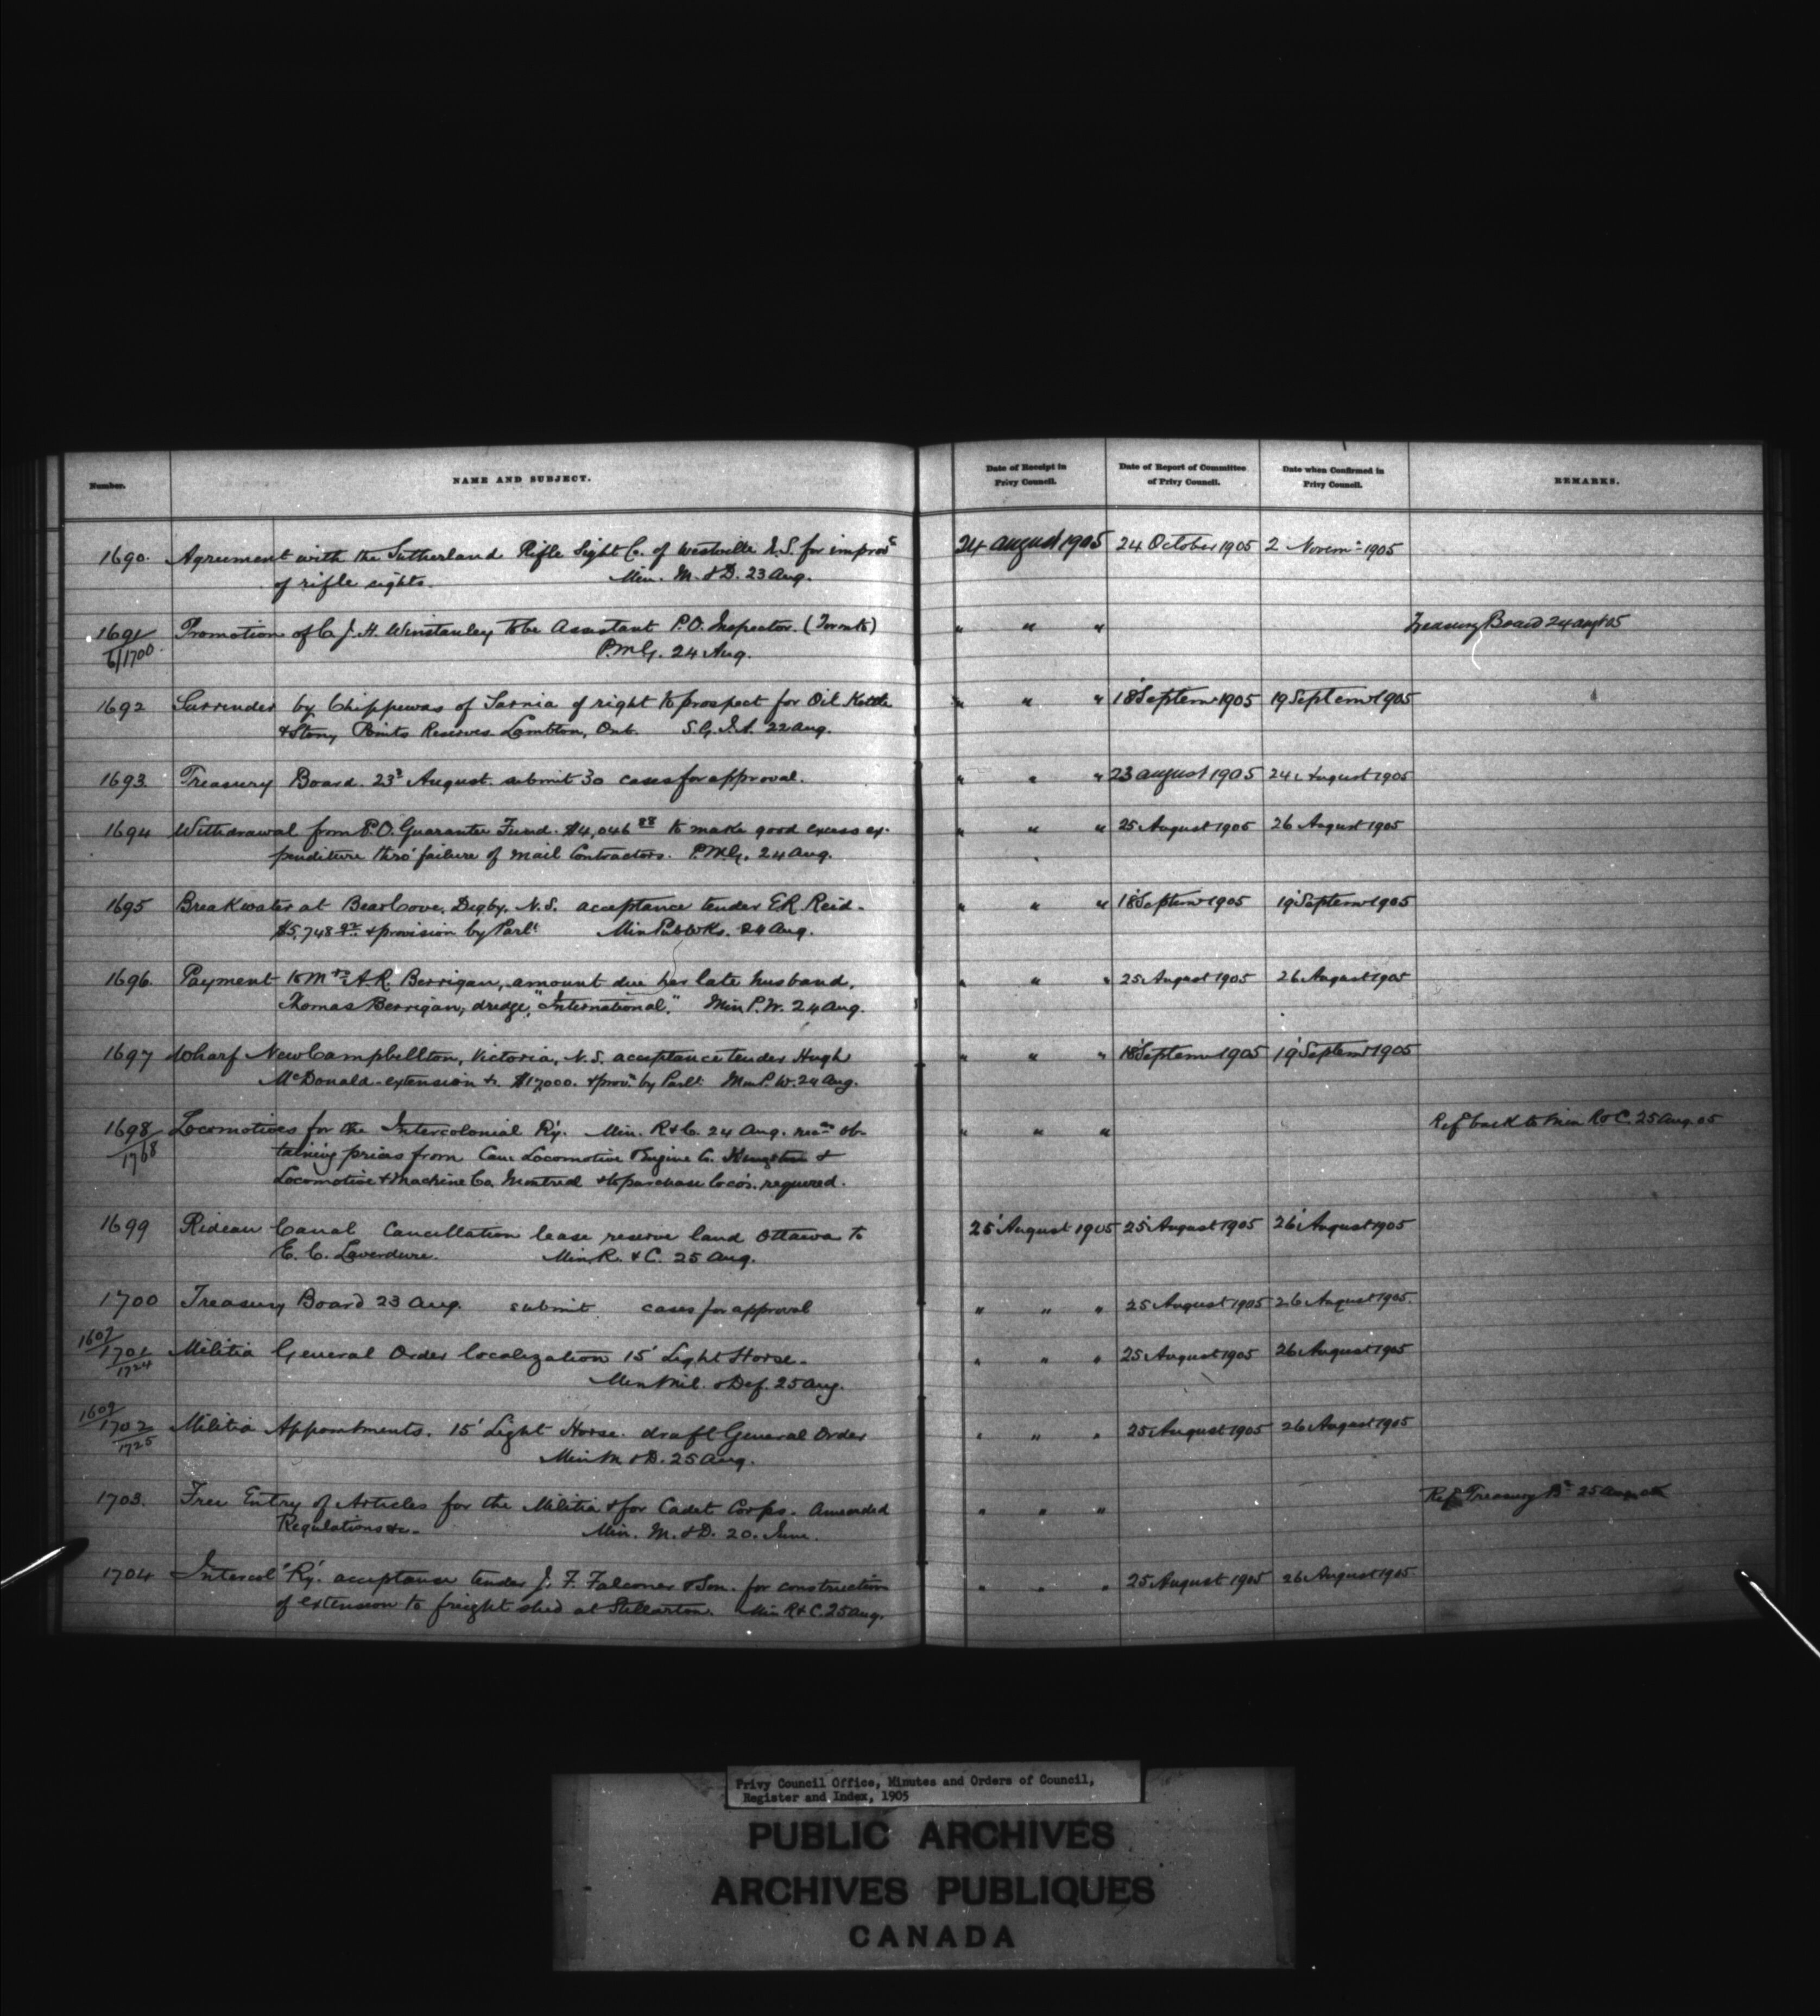 Number.
NAME AND SUBJECT.
Date of Receipt in
Privy Council.
Date of Report of Committee
of Privy Council.
Date when Confirmed in
Privy Council.
REMARKS.
1690. Agreement with the Sutherland Rifle Sight Co. of Westville N.S. for improvt 24 August 1905 24 October 1905 2 Novemr 1905
of rifle sights. Min. M. & D. 23 Aug.
1691 Promotion of C. J. H. Winstanley to be Assistant P.O. Inspector. (Toronto) " " " Treasury Board 24 Augt 05
6/1700. P.M.G. 24 Aug.
1692 Surrender by Chippewas of Sarnia of right to prospect for Oil Kettle " " " 18' Septemr 1905 19 Septemr 1905
& Stony Points Reserves Lambton, Ont. S.G.I.A. 22 Aug.
1693. Treasury Board. 23d August. submit 30 cases for approval. " " " 23 August 1905 24 August 1905
1694 Withdrawal from P.O. Guarantee Fund. $4,046 88 to make good excess ex- " " " 25 August 1905 26 August 1905
penditure thro' failure of Mail Contractors. P.M.G. 24 Aug.
1695 Breakwater at Bear Cove, Digby, N.S. acceptance tender E R Reid. " " " 18' Septemr 1905 19' Septemr 1905
$5,748 & provision by Parlt Min Pub Wks. 24 Aug.
1696. Payment to Mrs A. R. Berrigan, amount due her late husband, " " " 25 August 1905 26 August 1905
Thomas Berrigan, dredge, "International." Min P.W. 24 Aug.
1697 Wharf New Campbellton, Victoria, N.S. acceptance tender Hugh " " " 18' Septemr 1905 19' Septemr 1905
McDonald - extension &c. $17000. & provn by Parlt Min P.W. 24 Aug.
1698 Locomotives for the Intercolonial Ry. Min. R & C. 24 Aug. ob- " " " Ref back to Min R & C. 25 Aug. 05
1768 taining prices from Can: Locomotive & Engine Co. Kingston &
Locomotive & Machine Co. Montreal & to purchase loco's. required.
1699 Rideau Canal Cancellation lease reserve land Ottawa to 25' August 1905 25' August 1905 26' August 1905
E. C. Laverdure. Min R. & C. 25 Aug.
1700 Treasury Board 23 Aug. submit cases for approval " " " 25 August 1905 26 August 1905.
1607
1701 Militia General Order localization 15' Light Horse. " " " 25 August 1905 26 August 1905
1724 Min Mil. & Def. 25 Aug.
1609
1702 Militia Appointments. 15' Light Horse. draft General Order " " " 25 August 1905 26 August 1905
1725 Min M & D. 25 Aug.
1703. Free Entry of Articles for the Militia & for Cadet Corps. Amended " " " Ref Treasury Bd 25 Aug.
Regulations &c. Min. M. & D. 20. June.
1704 Intercol' Ry. acceptance tender J. F. Falconer & Son. for construction " " " 25 August 1905 26 August 1905
of extension to freight shed at Stellarton. Min R & C. 25 Aug.
Privy Council Office, Minutes and Orders of Council,
Register and Index, 1905
PUBLIC ARCHIVES
ARCHIVES PUBLIQUES
CANADA